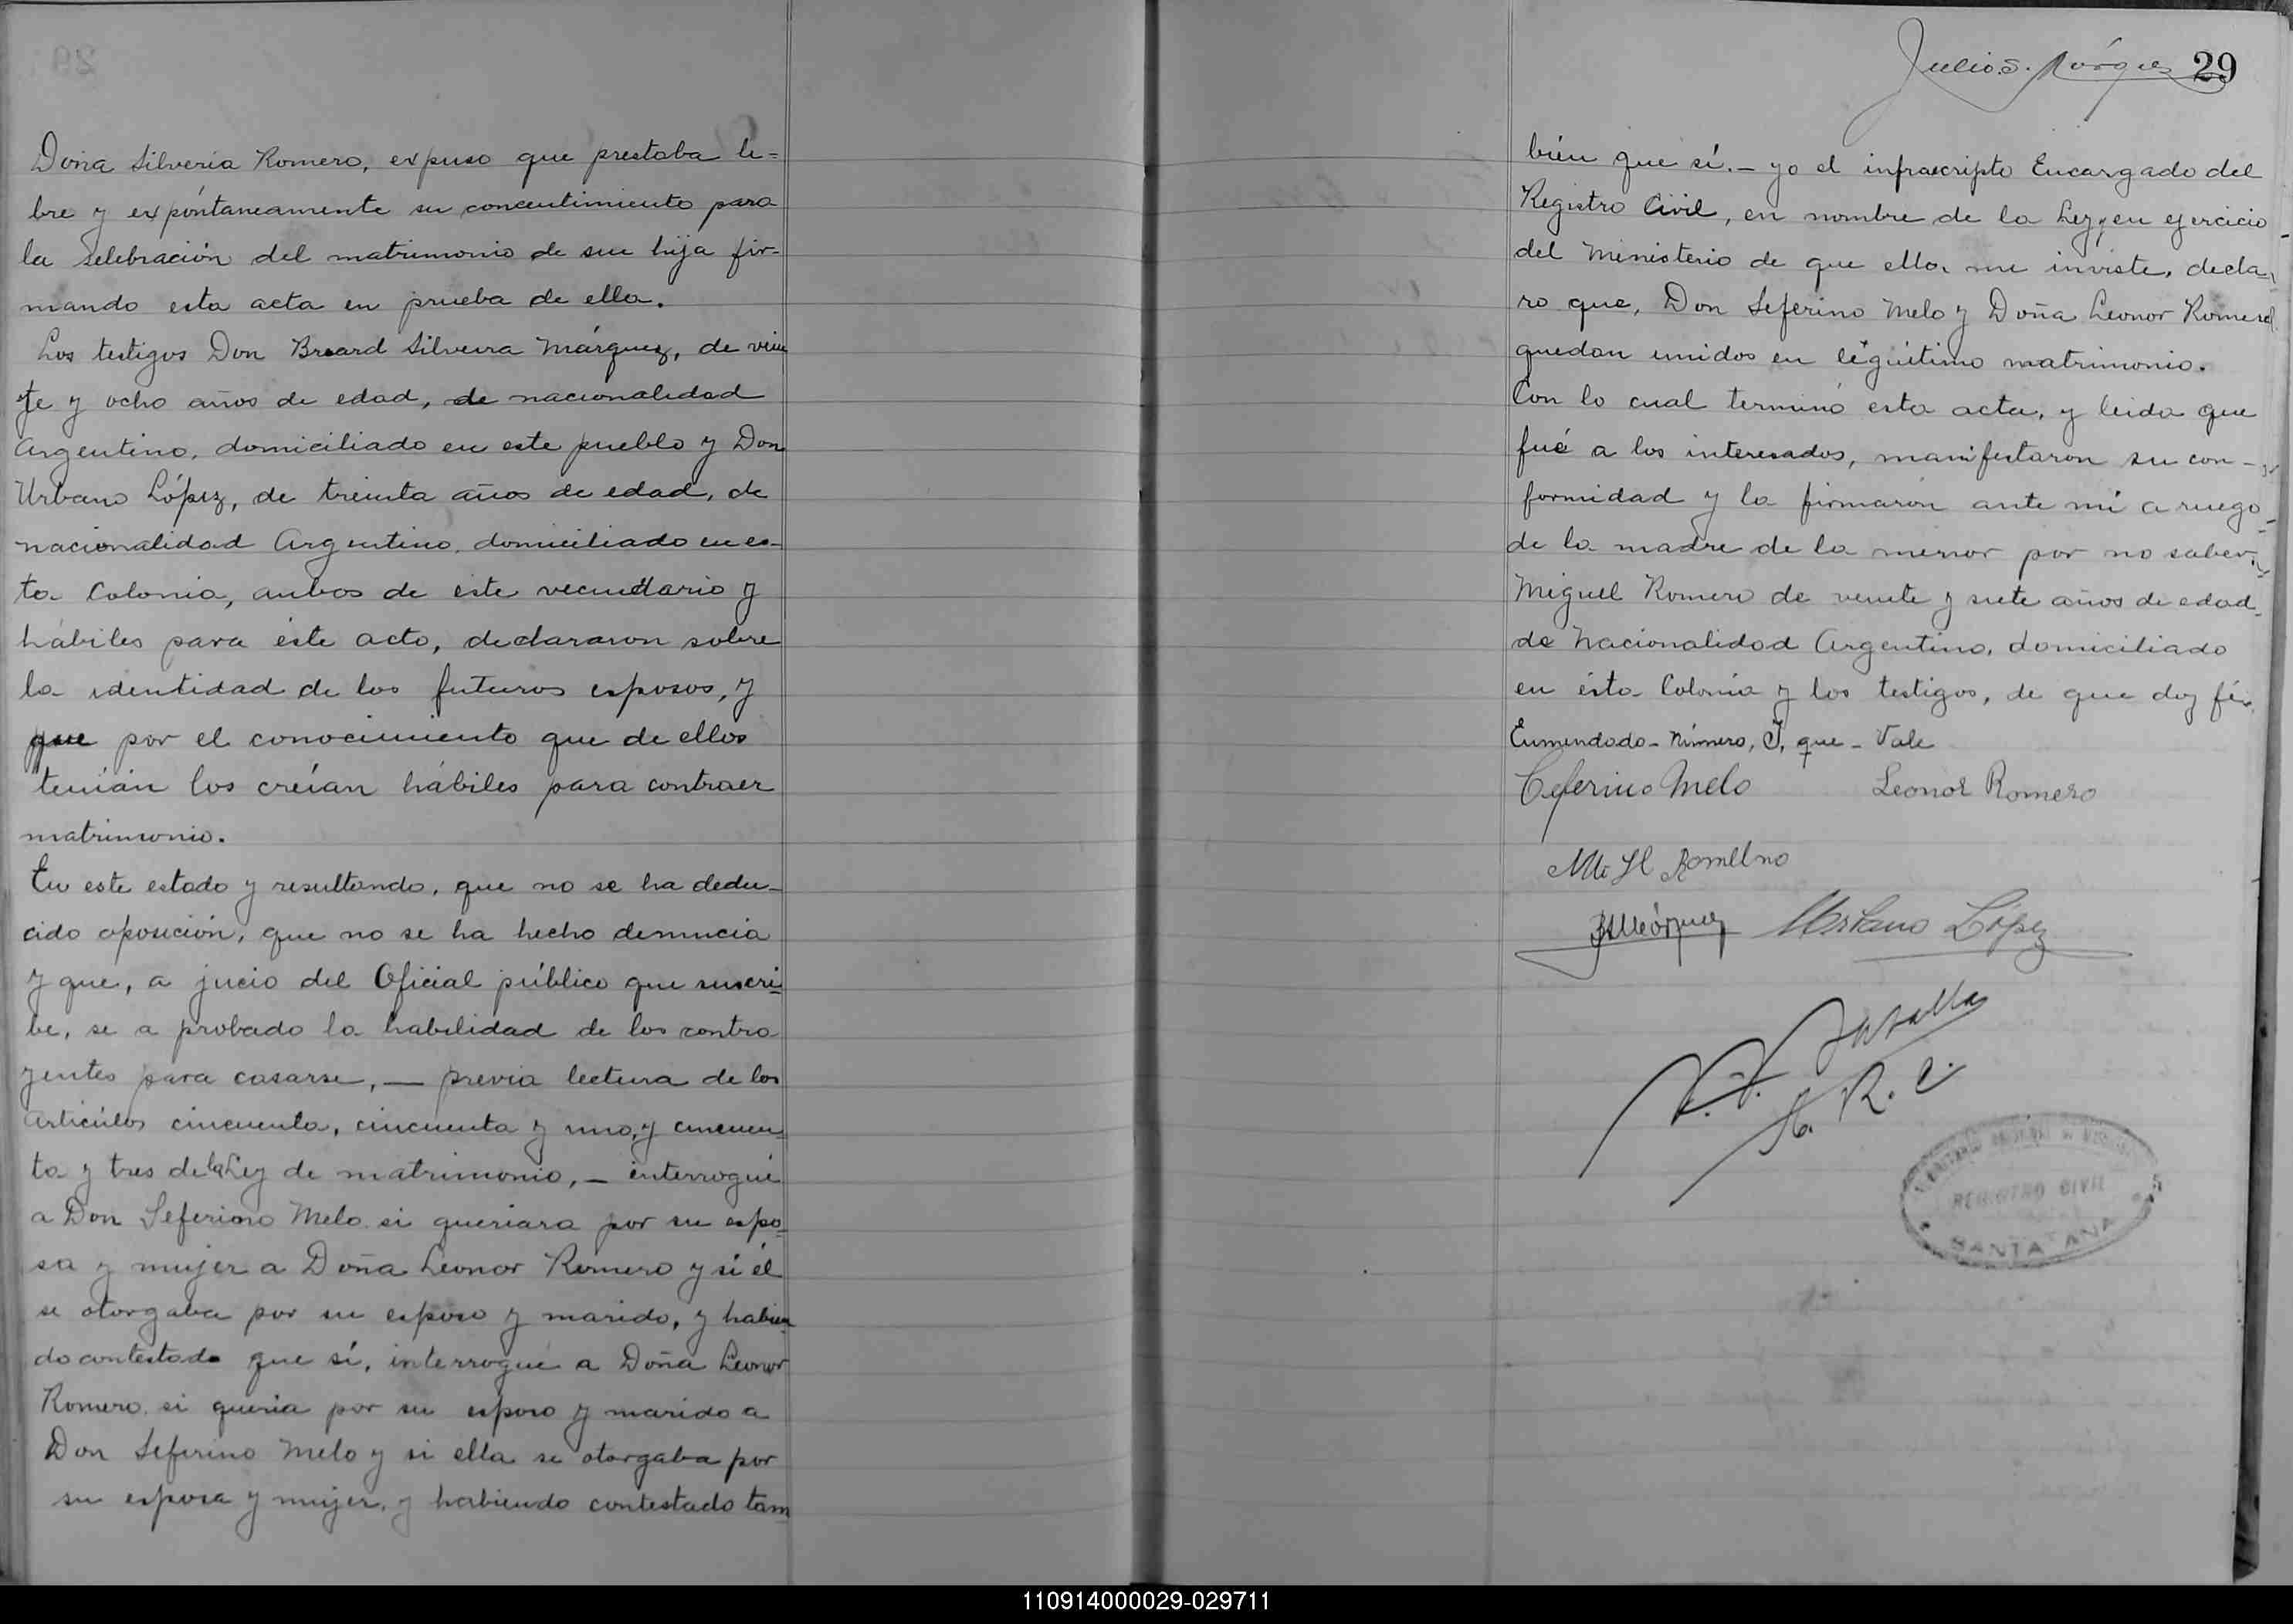 Doña Silveria Romero, expuso que prestaba li=
bre y expóntaneamente su concentimiento para
la selebración del matrimonio de su hija fir-
mando esta acta en prueba de ella.
Los testigos Don Breard Silveira Márquez, de vein
te y ocho años de edad, de nacionalidad
Argentino, domiciliado en este pueblo y Don
Urbano López, de treinta años de edad, de
nacionalidad Argentino, domiciliado en es-
ta Colonia, ambos de este vecindario y
hábiles para éste acto, declararon sobre
la identidad de los futuros esposos, y
que por el conocimiento que de ellos
tenían los creían hábiles para contraer
matrimonio.
En este estado y resultando, que no se ha dedu-
cido oposición, que no se ha hecho denuncia
y que, a jucio del Oficial público que suscri-
be, se a probado la habilidad de los contra
yentes para casarse, — previa lectura de los
Artículos cincuenta, cincuenta y uno, y cincuen-
ta y tres de la Ley de matrimonio, — interrogué
a Don Seferino Melo si queriara por su espo-
sa y mujer a Doña Leonor Romero y si él
se otorgaba por su esposo y marido, y habien
do contestado que sí, interrogué a Doña Leonor
Romero si quería por su esposo y marido a
Don Seferino Melo y si ella se otorgaba por
su esposa y mujer, y habiendo contestado tam
Julio S. Márquez 29
bién que sí. — yo el infrascripto Encargado del
Registro Civil, en nombre de la Ley, en ejercicio
del Ministerio de que ella me inviste, decla-
ro que, Don Seferino Melo y Doña Leonor Romero
quedan unidos en légitimo matrimonio.
Con lo cual terminó esta acta, y leida que
fué a los interesados, manifestaron su con-
formidad y la firmaron ante mí a ruego
de la madre de la menor por no saber
Miguel Romero de veinte y siete años de edad
de Nacionalidad Argentino, domiciliado
en ésta Colonia y los testigos, de que doy fé.
Enmendado - Número, J, que - Vale
Ceferino Melo Leonor Romero
BSMárquez Urbano López
E. R. C.
REGISTRO CIVIL
SANTA ANA
110914000029-029711